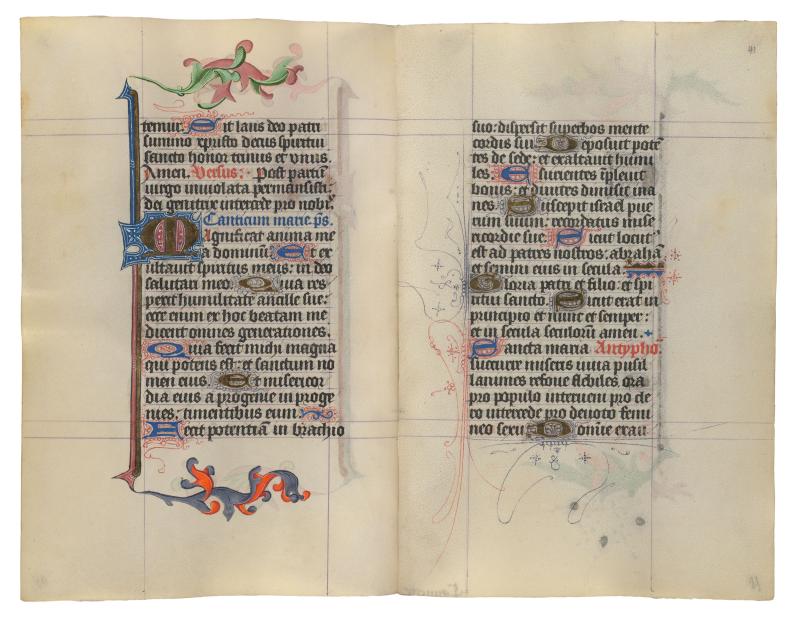 ternur. Sit laus deo patri
summo xpristo decus spiritui
sancto honor trinus et vnus.
Amen. Versus: Post partū
uirgo inuiolata permansisti.
dei genitrix intercede pro nobis.
Canticum marie. ps.
Magnificat anima me
a dominū. Et ex
ultauit spiritus meus: in deo
salutari meo. Quia res
pexit humilitatē ancille sue:
ecce enim ex hoc beatam me
dicent omnes generationes.
Quia fecit michi magna
qui potens est: et sanctum no
men eius. Et misericor
dia eius a progenie in proge
nies: timentibus eum.
Fecit potentiā in brachio
41
suo: dispersit superbos mente
cordis sui. Deposuit potē
tes de sede: et exaltauit humi
les. Esurientes īpleuit
bonis: et diuites dimisit ina
nes. Suscepit israel pue
rum suum: recordatus mise
ricordie sue. Sicut locutꝰ
est ad patres nostros: abrahā
et semini eius in secula.
Gloria patri et filio: et spi
ritui sancto. Sicut erat in
principio et nunc et semper:
et in secula seculorū amen.
Sancta maria Antypho.
succurre miseris iuua pusil
lanimes refoue flebiles, ora
pro populo interueni pro cle
ro intercede pro deuoto femi
neo sexu. Domine exau